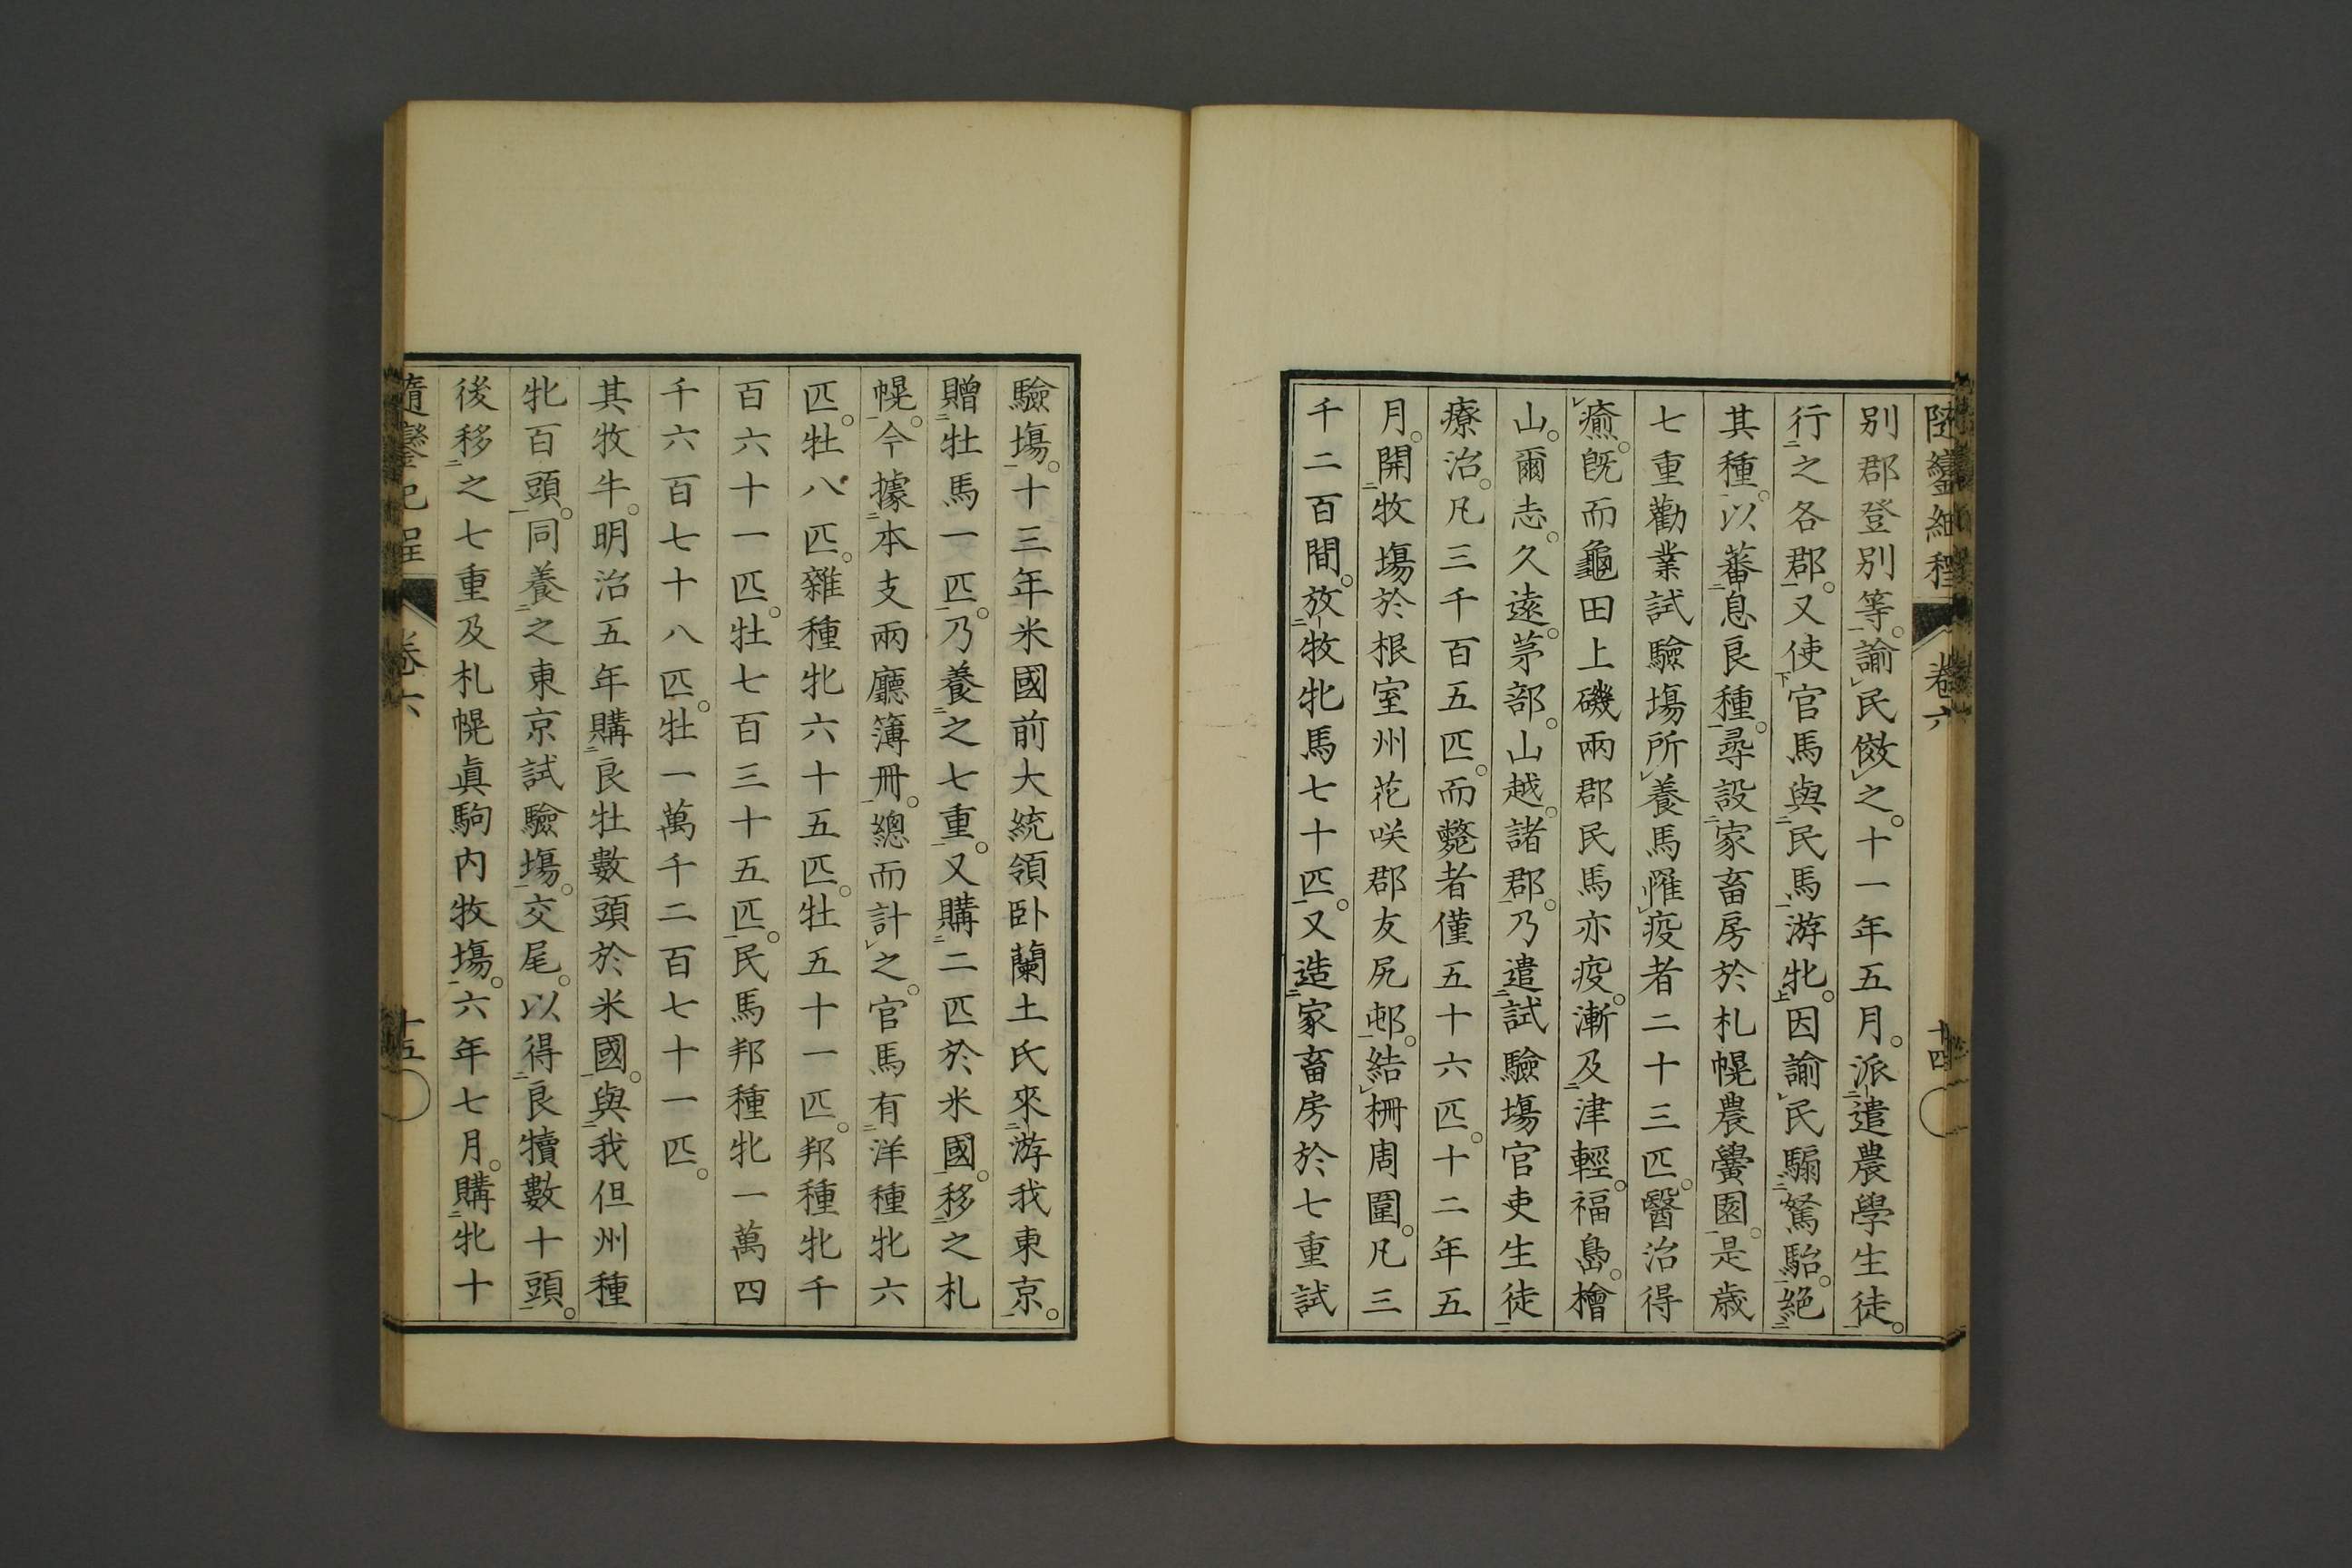 隨鑾紀程 卷六 十四
別郡登別等。諭民傚之。十一年五月。派遣農學生徒。
行之各郡。又使官馬與民馬游牝。因諭民騸駑駘。絕
其種。以蕃息良種。尋設家畜房於札幌農黌園。是歳
七重勸業試驗塲所養馬罹疫者二十三匹。醫治得
癒。旣而龜田上磯兩郡民馬亦疫。漸及津輕。福島。檜
山。爾志。久遠。茅部。山越。諸郡。乃遣試驗塲官吏生徒
療治。凡三千百五匹。而斃者僅五十六匹。十二年五
月。開牧塲於根室州花咲郡友尻邨。結柵周圍。凡三
千二百間。放牧牝馬七十匹。又造家畜房於七重試
驗塲。十三年米國前大統領卧蘭土氏來游我東京。
贈牡馬一匹。乃養之七重。又購二匹於米國。移之札
幌。今據本支兩廳簿冊。總而計之。官馬有洋種牝六
匹。牡八匹。雜種牝六十五匹。牡五十一匹。邦種牝千
百六十一匹。牡七百三十五匹。民馬邦種牝一萬四
千六百七十八匹。牡一萬千二百七十一匹。
其牧牛。明治五年購良牡數頭於米國。與我但州種
牝百頭。同養之東京試驗塲。交尾。以得良犢數十頭。
後移之七重及札幌眞駒内牧塲。六年七月。購牝十
隨鑾紀程 卷六 十五